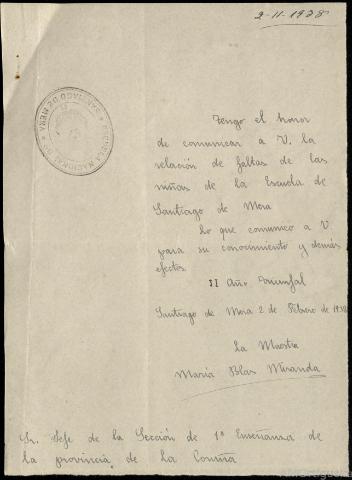 2-11-1938
Tengo el honor
de comunicar a V. la
relación de faltas de las
niñas de la Escuela de
Santiago de Mera
lo que comunico a V
para su conocimiento y demás
efectos.
II Año Triunfal
Santiago de Mera 2 de Febrero de 1938
La Maestra
María Blas Miranda
Sr. Jefe de la Sección de 1ª Enseñanza de
la provincia de La Coruña
ESCUELA NACIONAL DE
SANTIAGO DE MERA